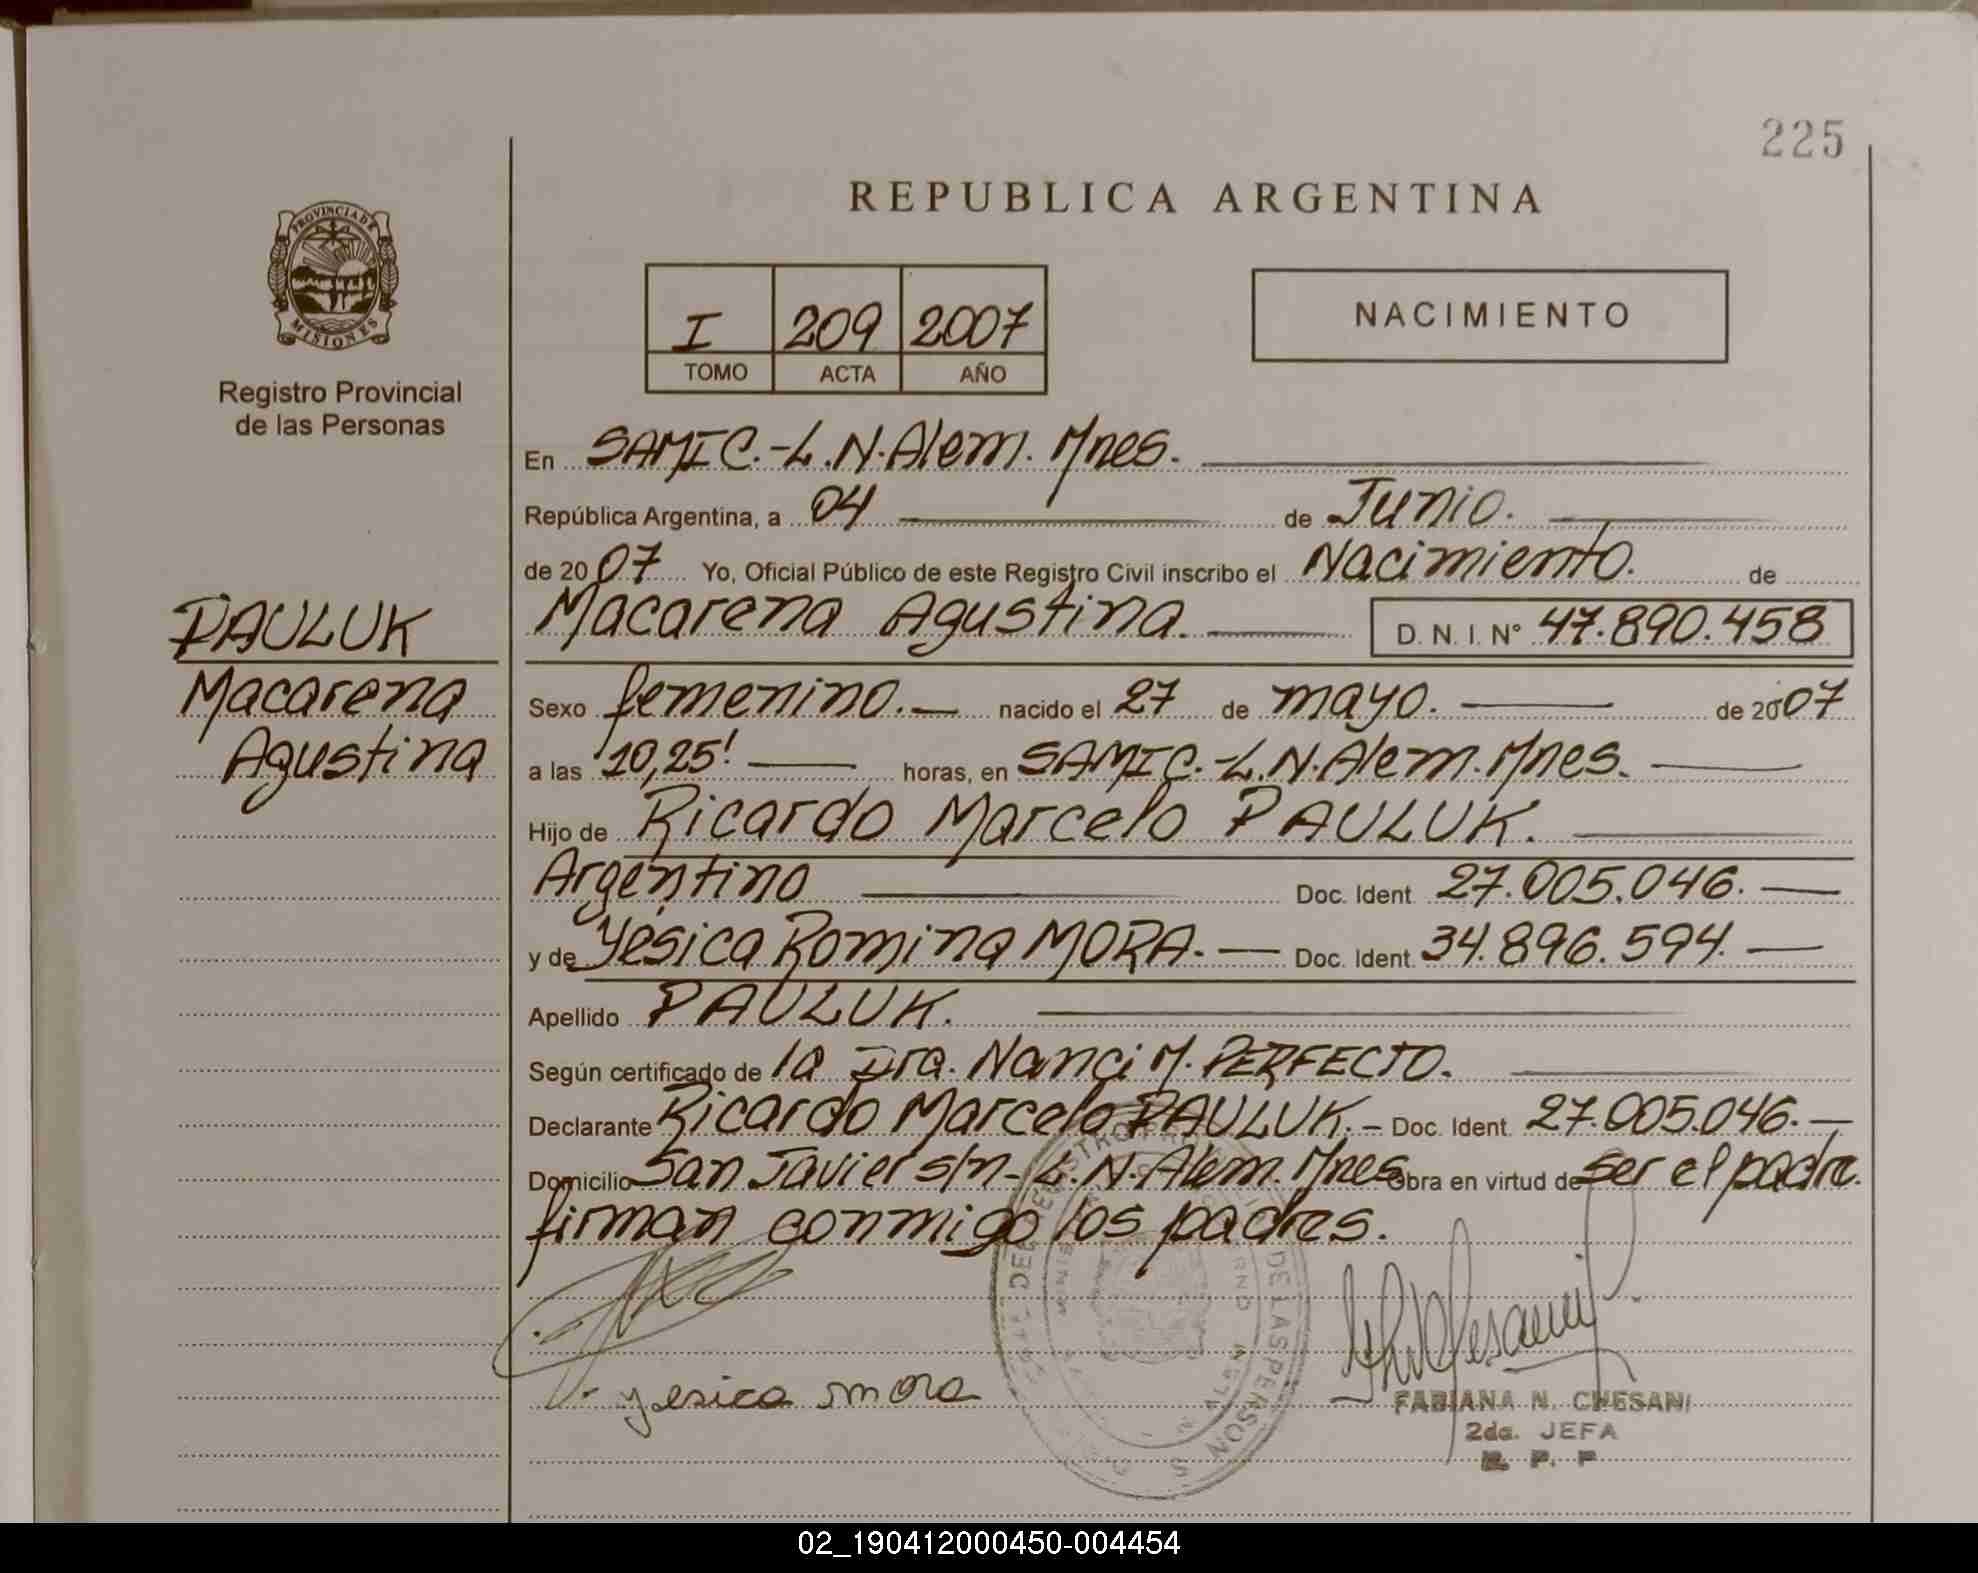 225
REPUBLICA ARGENTINA
PROVINCIA DE
MISIONES
Registro Provincial
de las Personas
I 209 2007
TOMO ACTA AÑO
NACIMIENTO
En SAMIC.-L.N.Alem. Mnes.
República Argentina, a 04 de Junio.
de 2007 Yo, Oficial Público de este Registro Civil inscribo el Nacimiento. de
Macarena Agustina. D. N. I. Nº 47.890.458
PAULUK
Macarena
Agustina
Sexo femenino.- nacido el 27 de mayo. de 2007
a las 10,25! horas, en SAMIC.-L.N.Alem. Mnes.
Hijo de Ricardo Marcelo PAULUK.
Argentino Doc. Ident. 27.005.046.
y de Yésica Romina MORA.- Doc. Ident. 34.896.594.
Apellido PAULUK.
Según certificado de la Dra. Nanci M. PERFECTO.
Declarante Ricardo Marcelo PAULUK.- Doc. Ident. 27.005.046.-
Domicilio San Javier s/n- L.N.Alem. Mnes Obra en virtud de ser el padre.
firman conmigo los padres.
yesica mora
FABIANA N. CHESANI
2da. JEFA
R. P. P
02_190412000450-004454